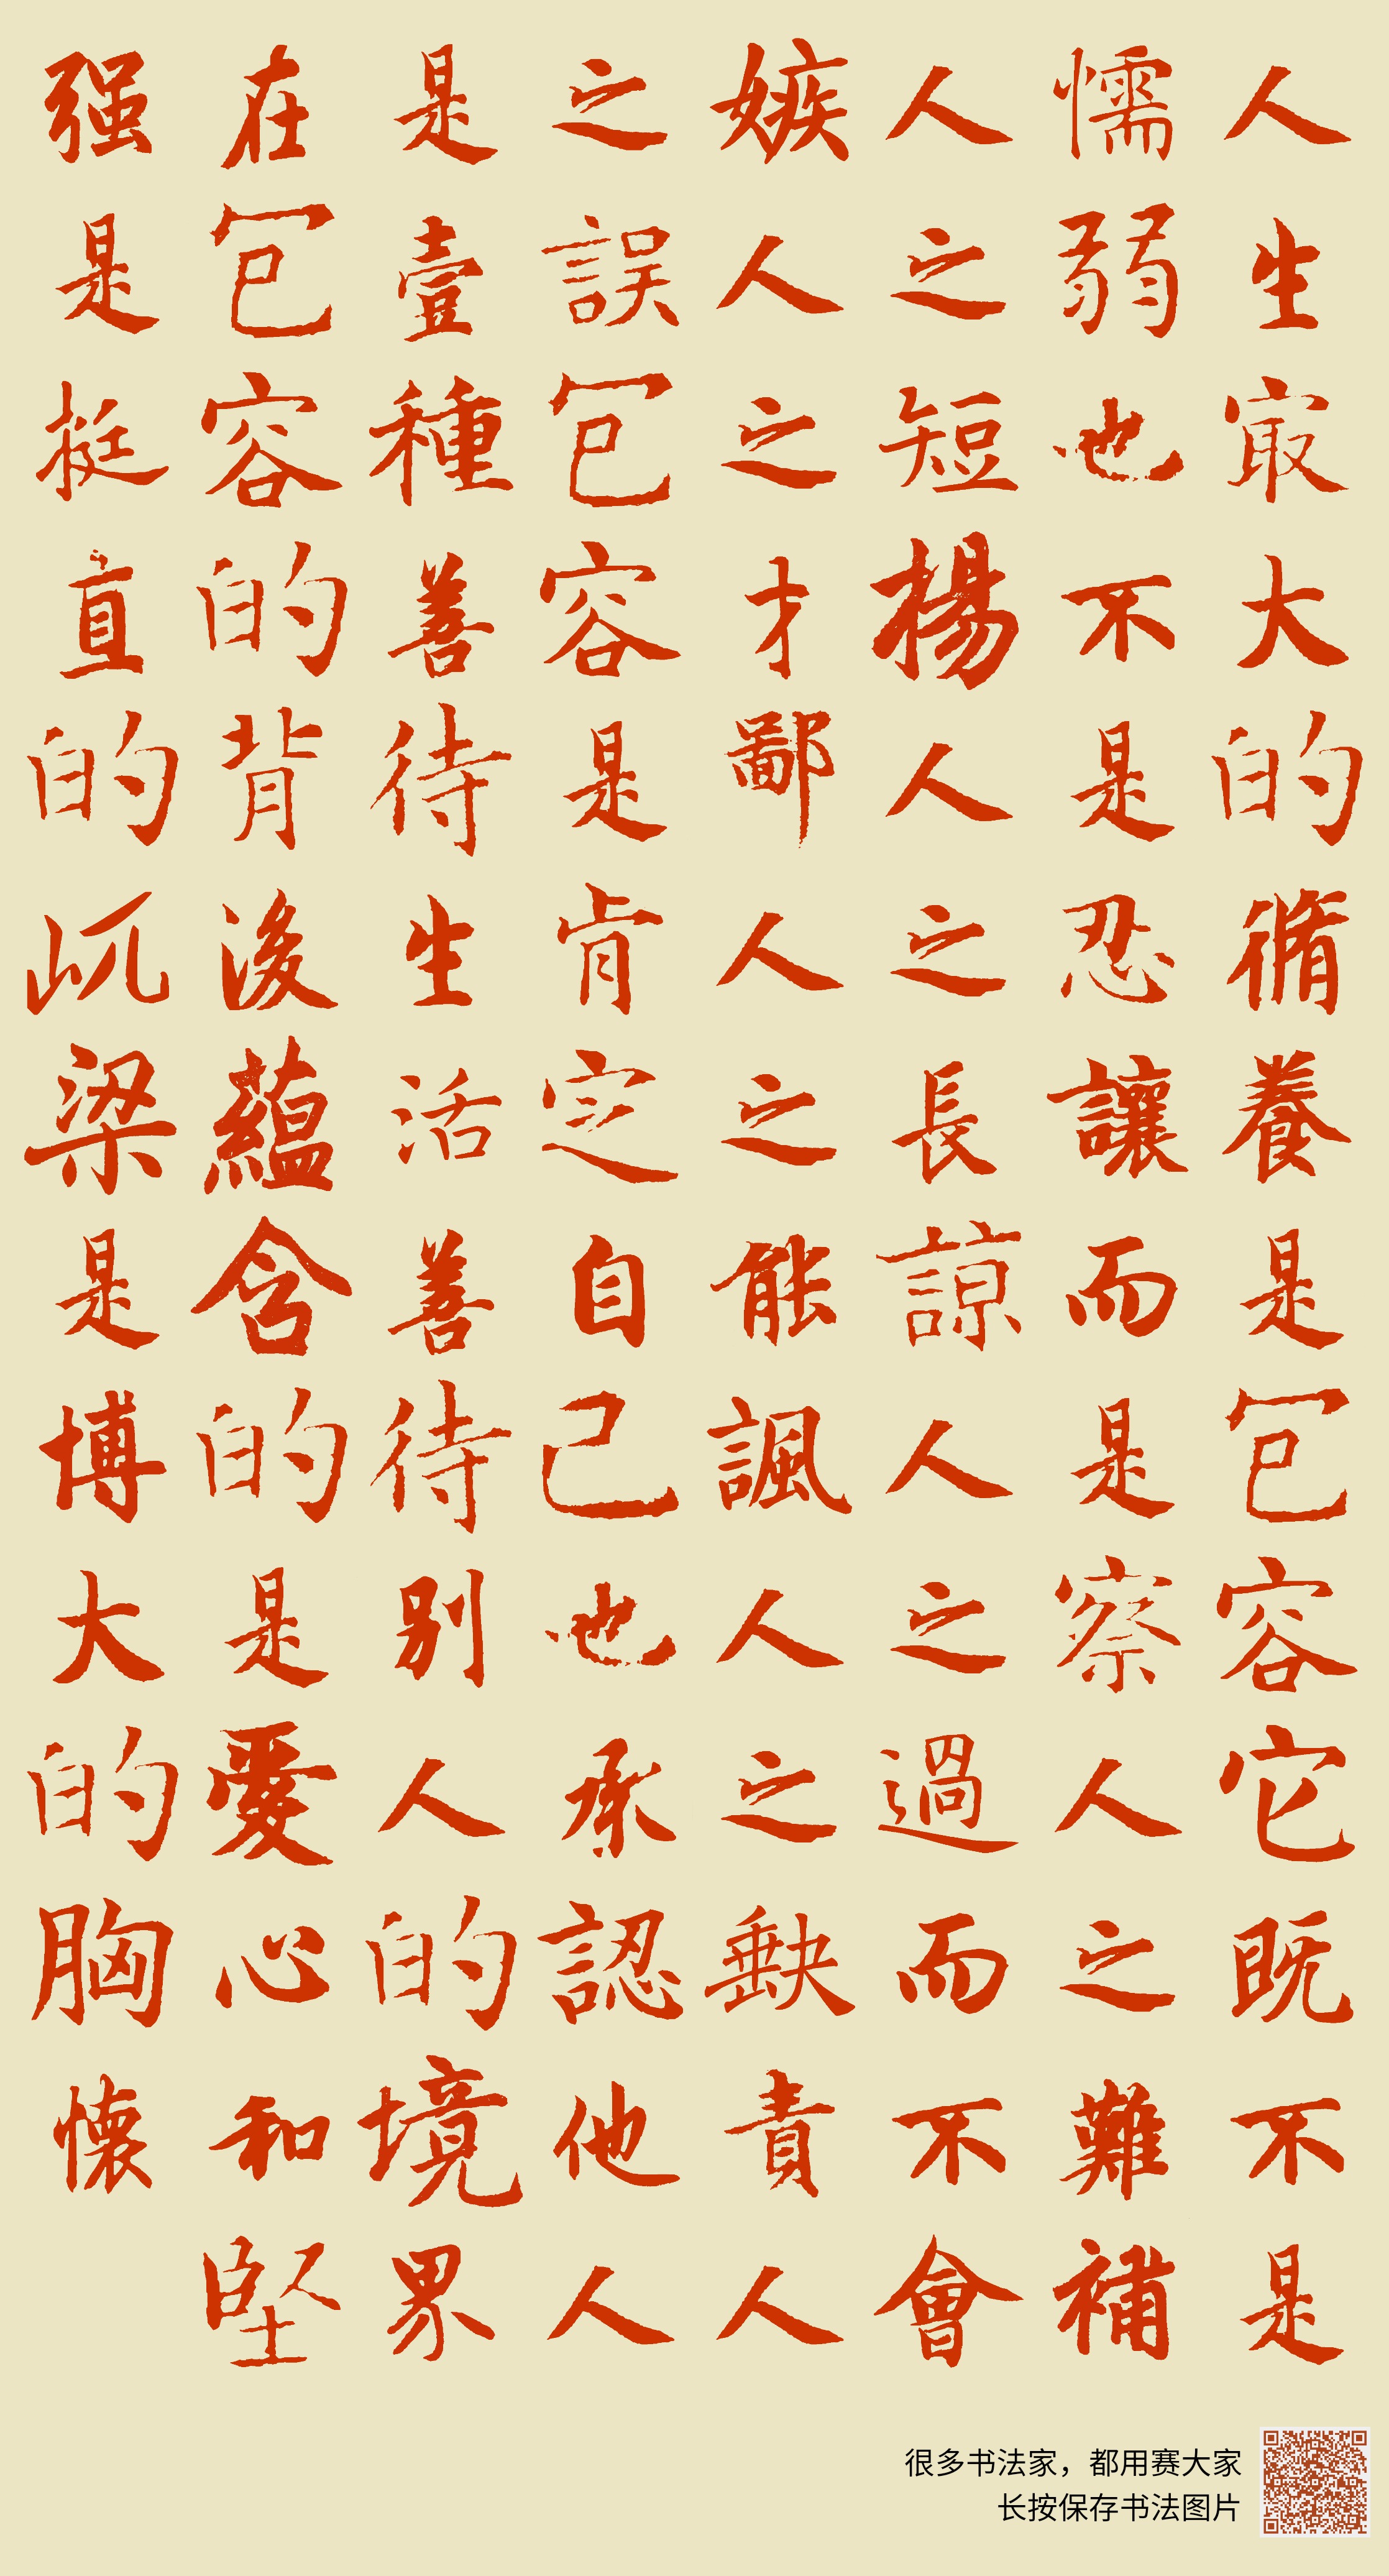 人生最大的脩養是包容它既不是
懦弱也不是忍讓而是察人之難補
人之短楊人之長諒人之過而不會
嫉人之才鄙人之能諷人之缺責人
之誤包容是肯定自己也承認他人
是壹種善待生活善待別人的境界
在包容的背後蘊含的是愛心和堅
强是挺直的㞦梁是博大的胸懷
很多书法家，都用赛大家
长按保存书法图片